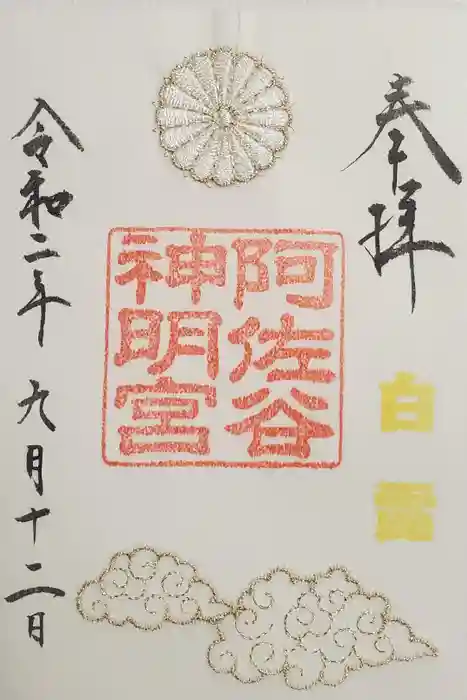 奉拝
白露
阿佐谷
神明宮
令和二年 九月十二日